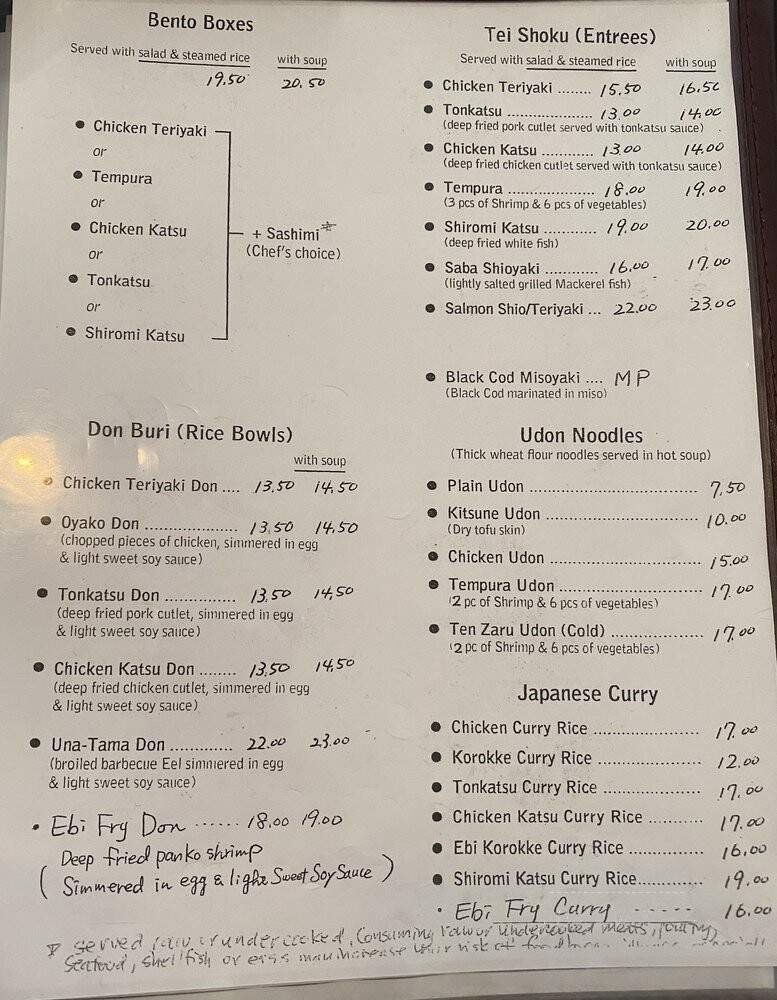 Bento Boxes
Served with salad & steamed rice with soup
19.50 20.50
• Chicken Teriyaki
or
• Tempura
or
• Chicken Katsu
or
• Tonkatsu
or
• Shiromi Katsu
+ Sashimi*
(Chef's choice)
Don Buri (Rice Bowls)
with soup
• Chicken Teriyaki Don .... 13.50 14.50
• Oyako Don .................... 13.50 14.50
(chopped pieces of chicken, simmered in egg
& light sweet soy sauce)
• Tonkatsu Don ............... 13.50 14.50
(deep fried pork cutlet, simmered in egg
& light sweet soy sauce)
• Chicken Katsu Don ........ 13.50 14.50
(deep fried chicken cutlet, simmered in egg
& light sweet soy sauce)
• Una-Tama Don ............. 22.00 23.00
(broiled barbecue Eel simmered in egg
& light sweet soy sauce)
• Ebi Fry Don ...... 18.00 19.00
Deep fried panko shrimp
(Simmered in egg & light Sweet Soy Sauce)
Tei Shoku (Entrees)
Served with salad & steamed rice with soup
• Chicken Teriyaki ........ 15.50 16.50
• Tonkatsu .................... 13.00 14.00
(deep fried pork cutlet served with tonkatsu sauce)
• Chicken Katsu ............ 13.00 14.00
(deep fried chicken cutlet served with tonkatsu sauce)
• Tempura .................... 18.00 19.00
(3 pcs of Shrimp & 6 pcs of vegetables)
• Shiromi Katsu ............ 19.00 20.00
(deep fried white fish)
• Saba Shioyaki ............ 16.00 17.00
(lightly salted grilled Mackerel fish)
• Salmon Shio/Teriyaki ... 22.00 23.00
• Black Cod Misoyaki .... MP
(Black Cod marinated in miso)
Udon Noodles
(Thick wheat flour noodles served in hot soup)
• Plain Udon ...................................... 7.50
• Kitsune Udon .................................. 10.00
(Dry tofu skin)
• Chicken Udon .................................. 15.00
• Tempura Udon ................................. 17.00
(2 pc of Shrimp & 6 pcs of vegetables)
• Ten Zaru Udon (Cold) ..................... 17.00
(2 pc of Shrimp & 6 pcs of vegetables)
Japanese Curry
• Chicken Curry Rice ........................ 17.00
• Korokke Curry Rice ........................ 12.00
• Tonkatsu Curry Rice ....................... 17.00
• Chicken Katsu Curry Rice ............ 17.00
• Ebi Korokke Curry Rice ................ 16.00
• Shiromi Katsu Curry Rice.............. 19.00
• Ebi Fry Curry ------ 16.00
served raw or undercooked, Consuming raw or undercooked meats, poultry,
Seafood, shellfish or eggs may increase your risk of